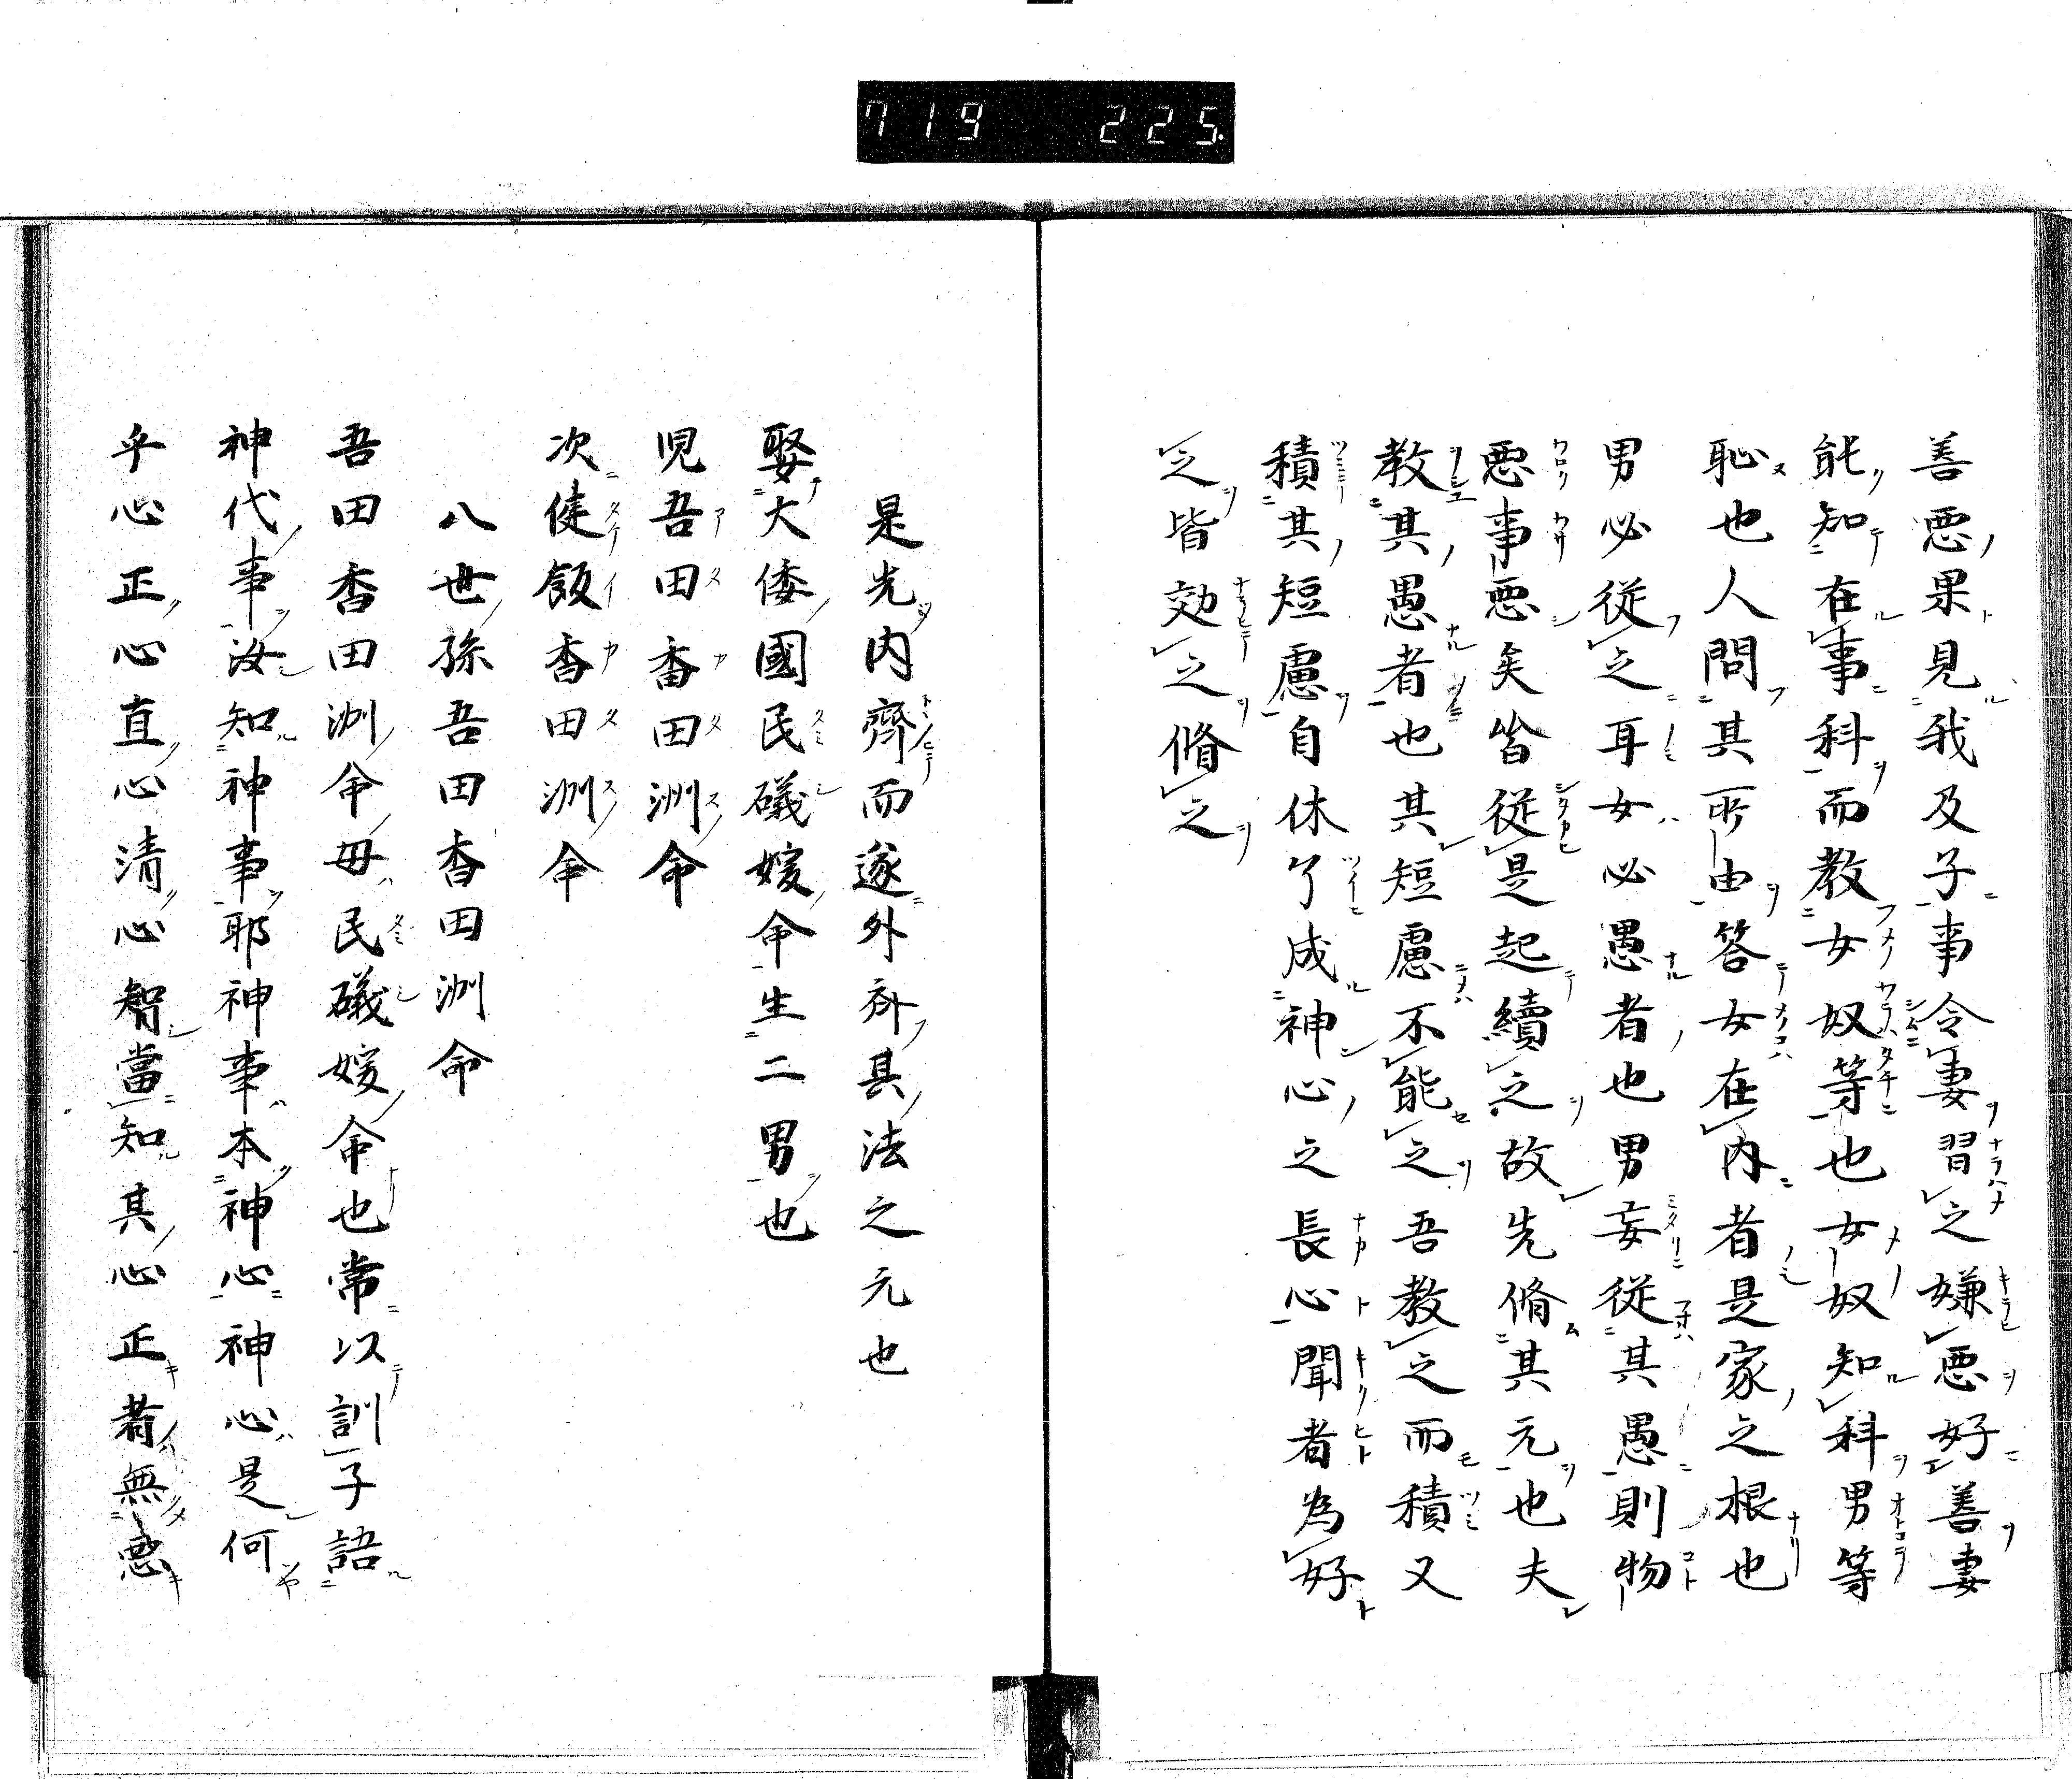 719 225.
善悪果見我及子事令妻習之嫌悪好善妻
能知在事科而教女奴等也女奴知科男等
恥也人問其所由答女在内者是家之根也
男必従之耳女必愚者也男妄従其愚則物
悪事悪矣皆従是起續之故先脩其元也夫
教其愚者也其短慮不能之吾教之而積又
積其短慮自休了成神心之長心聞者為好
之皆効之脩之
是先内齊而遂外齐其法之元也
娶大倭國民礒媛命生二男也
児吾田畨田洲命
次健飯杳田洲命
八世孫吾田杳田洲命
吾田杳田洲命母民礒媛命也常以訓子語
神代事汝知神事耶神事本神心神心是何
乎心正心直心清心智當知其心正者無悪